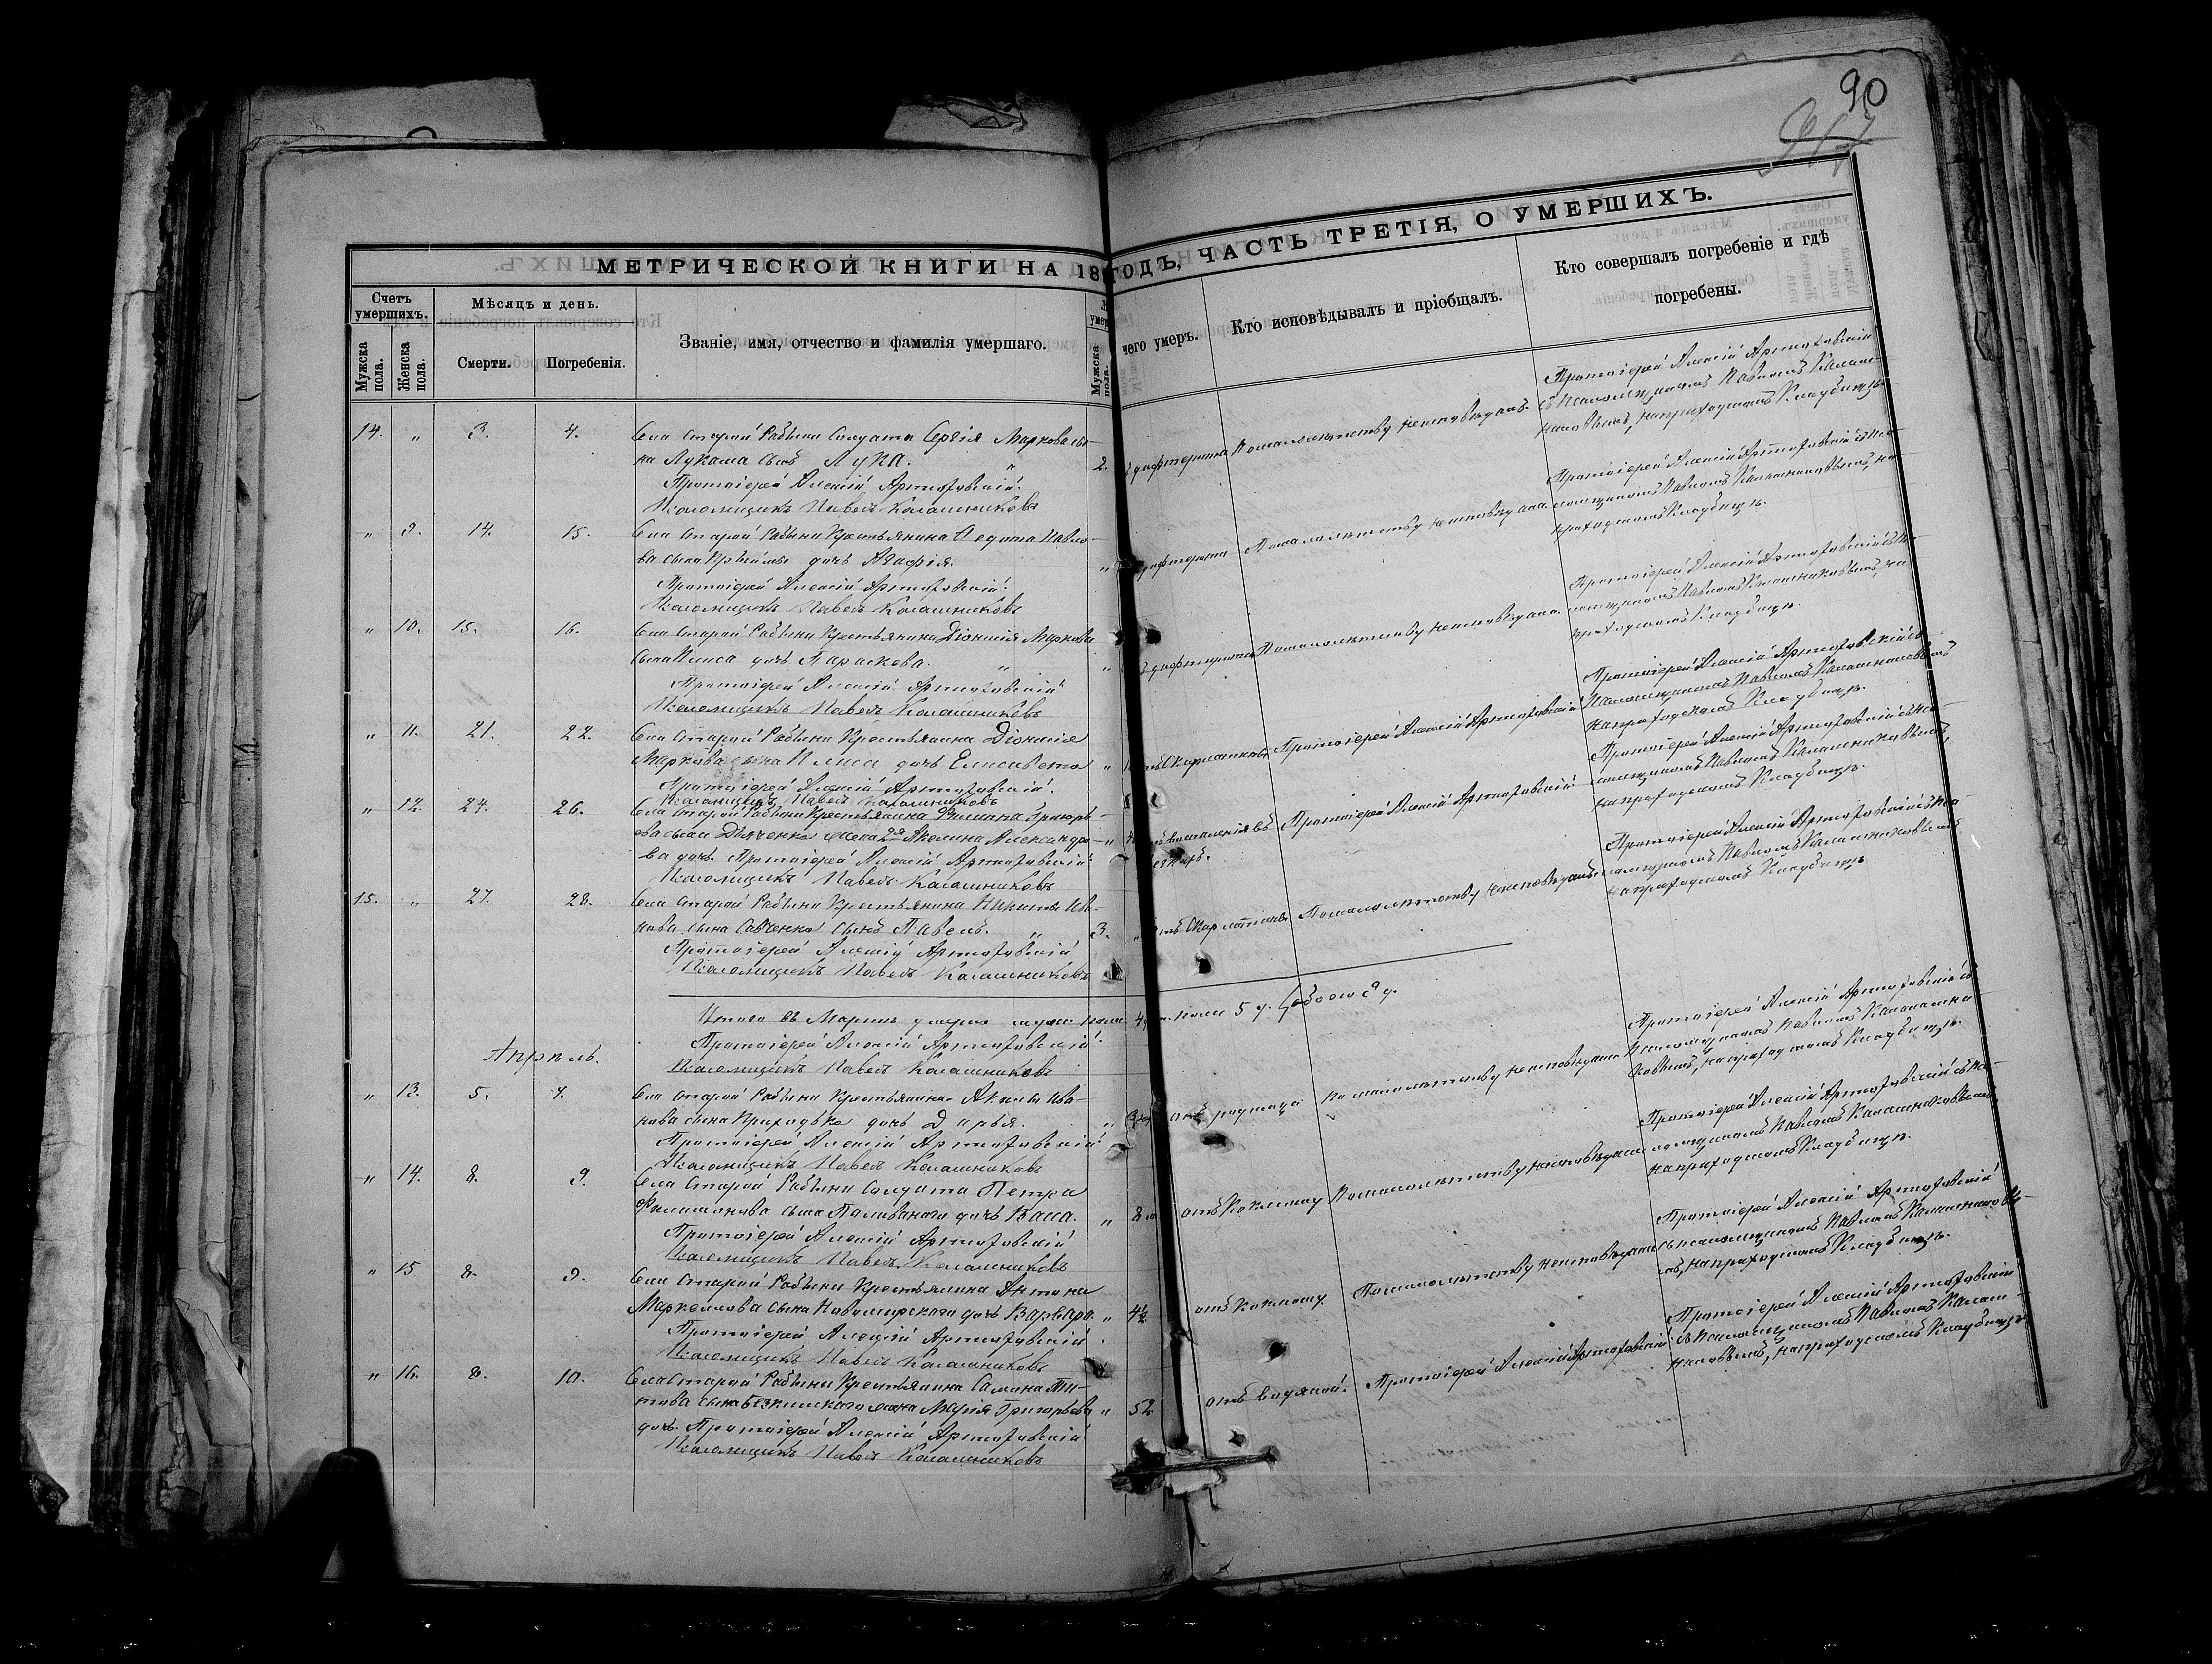 90
МЕТРИЧЕСКОЙ КНИГИ НА 18
ГОДЪ, ЧАСТЬ ТРЕТІЯ, О УМЕРШИХЪ.
Счетъ умершихъ.
Мужска пола.
Женска пола.
Мѣсяцъ и день.
Смерти.
Погребенія.
Званіе, имя, отчество и фамилія умершаго.
Мужска пола.
чего умеръ.
Кто исповѣдывалъ и пріобщалъ.
Кто совершалъ погребеніе и гдѣ погребены.
14. " 3. 4. Села Старой Рябины Солдата Сергія Маркова сы-
на Лукаша сынъ Лука. " 2.
Протоіерей Алексій Артюховскій
Псаломщикъ Павелъ Калашниковъ
дифтерита По малолѣтству неисповѣданъ.
Протоіерей Алексій Артюховскій
съ псаломщикомъ Павломъ Калаш-
никовымъ, на приходскомъ кладбищѣ.
" 9. 14. 15. Села Старой Рябины Крестьянина Федота Павло-
ва сына дочь Агафія. "
Протоіерей Алексій Артюховскій
Псаломщикъ Павелъ Калашниковъ
дифтерита По малолѣтству неисповѣдана.
Протоіерей Алексій Артюховскій съ пса-
ломщикомъ Павломъ Калашниковымъ, на
приходскомъ кладбищѣ.
" 10. 15. 16. Села Старой Рябины Крестьянина Діонисія Маркова
сына дочь Параскева. " "
Протоіерей Алексій Артюховскій
Псаломщикъ Павелъ Калашниковъ
дифтерита По малолѣтству неисповѣдана.
Протоіерей Алексій Артюховскій съ пса-
ломщикомъ Павломъ Калашниковымъ, на
приходскомъ кладбищѣ.
" 11. 21. 22. Села Старой Рябины Крестьянина Діонисія
Маркова сына дочь Елисавета "
Протоіерей Алексій Артюховскій.
Псаломщикъ Павелъ Калашниковъ
Скарлатины Протоіерей Алексій Артюховскій
Протоіерей Алексій Артюховскій съ
псаломщикомъ Павломъ Калашниковымъ
на приходскомъ кладбищѣ.
" 12. 24. 26. Села Старой Рябины Крестьянина Григорь-
ева сына Дяченка жена 2я Акилина Александро- "
ва дочь. Протоіерей Алексій Артюховскій
Псаломщикъ Павелъ Калашниковъ
воспаленія въ
Протоіерей Алексій Артюховскій
Протоіерей Алексій Артюховскій съ пса-
ломщикомъ Павломъ Калашниковымъ,
на приходскомъ кладбищѣ.
15. " 27. 28. Села Старой Рябины Крестьянина Никиты Ива-
нова сына Савченка сынъ Павелъ. " 3. "
Протоіерей Алексій Артюховскій
Псаломщикъ Павелъ Калашниковъ
отъ Скарлатины По малолѣтству неисповѣданъ
Протоіерей Алексій Артюховскій съ пса-
ломщикомъ Павломъ Калашниковымъ
на приходскомъ кладбищѣ
Итого въ Мартѣ умерло муж. пола 4, жен. пола 5 д. Обоего 9 д.
Протоіерей Алексій Артюховскій
Псаломщикъ Павелъ Калашниковъ
Апрѣль.
" 13. 5. 7. Села Старой Рябины Крестьянина Ива-
нова сына Приходька дочь Дарья. "
Протоіерей Алексій Артюховскій
Псаломщикъ Павелъ Калашниковъ
отъ родимца По малолѣтству неисповѣдана
Протоіерей Алексій Артюховскій съ
псаломщикомъ Павломъ Калашни-
ковымъ, на приходскомъ кладбищѣ.
" 14. 8. 9. Села Старой Рябины Солдата Петра
Филимонова сына Поливаного дочь Васса. " 8 м
Протоіерей Алексій Артюховскій
Псаломщикъ Павелъ Калашниковъ
отъ коклюшу По малолѣтству неисповѣдана
Протоіерей Алексій Артюховскій съ пса-
ломщикомъ Павломъ Калашниковымъ,
на приходскомъ кладбищѣ.
" 15 8. 9. Села Старой Рябины Крестьянина Антона
Маркеллова сына дочь Варвара. " 4½
Протоіерей Алексій Артюховскій
Псаломщикъ Павелъ Калашниковъ
отъ коклюшу По малолѣтству неисповѣдана
Протоіерей Алексій Артюховскій
съ псаломщикомъ Павломъ Калашниковы-
мъ, на приходскомъ кладбищѣ.
" 16. 8. 10. Села Старой Рябины Крестьянина
сына жена Марія Григорьева " 52
дочь. Протоіерей Алексій Артюховскій
Псаломщикъ Павелъ Калашниковъ
отъ водяной. Протоіерей Алексій Артюховскій
Протоіерей Алексій Артюховскій
съ псаломщикомъ Павломъ Калаш-
никовымъ, на приходскомъ кладбищѣ